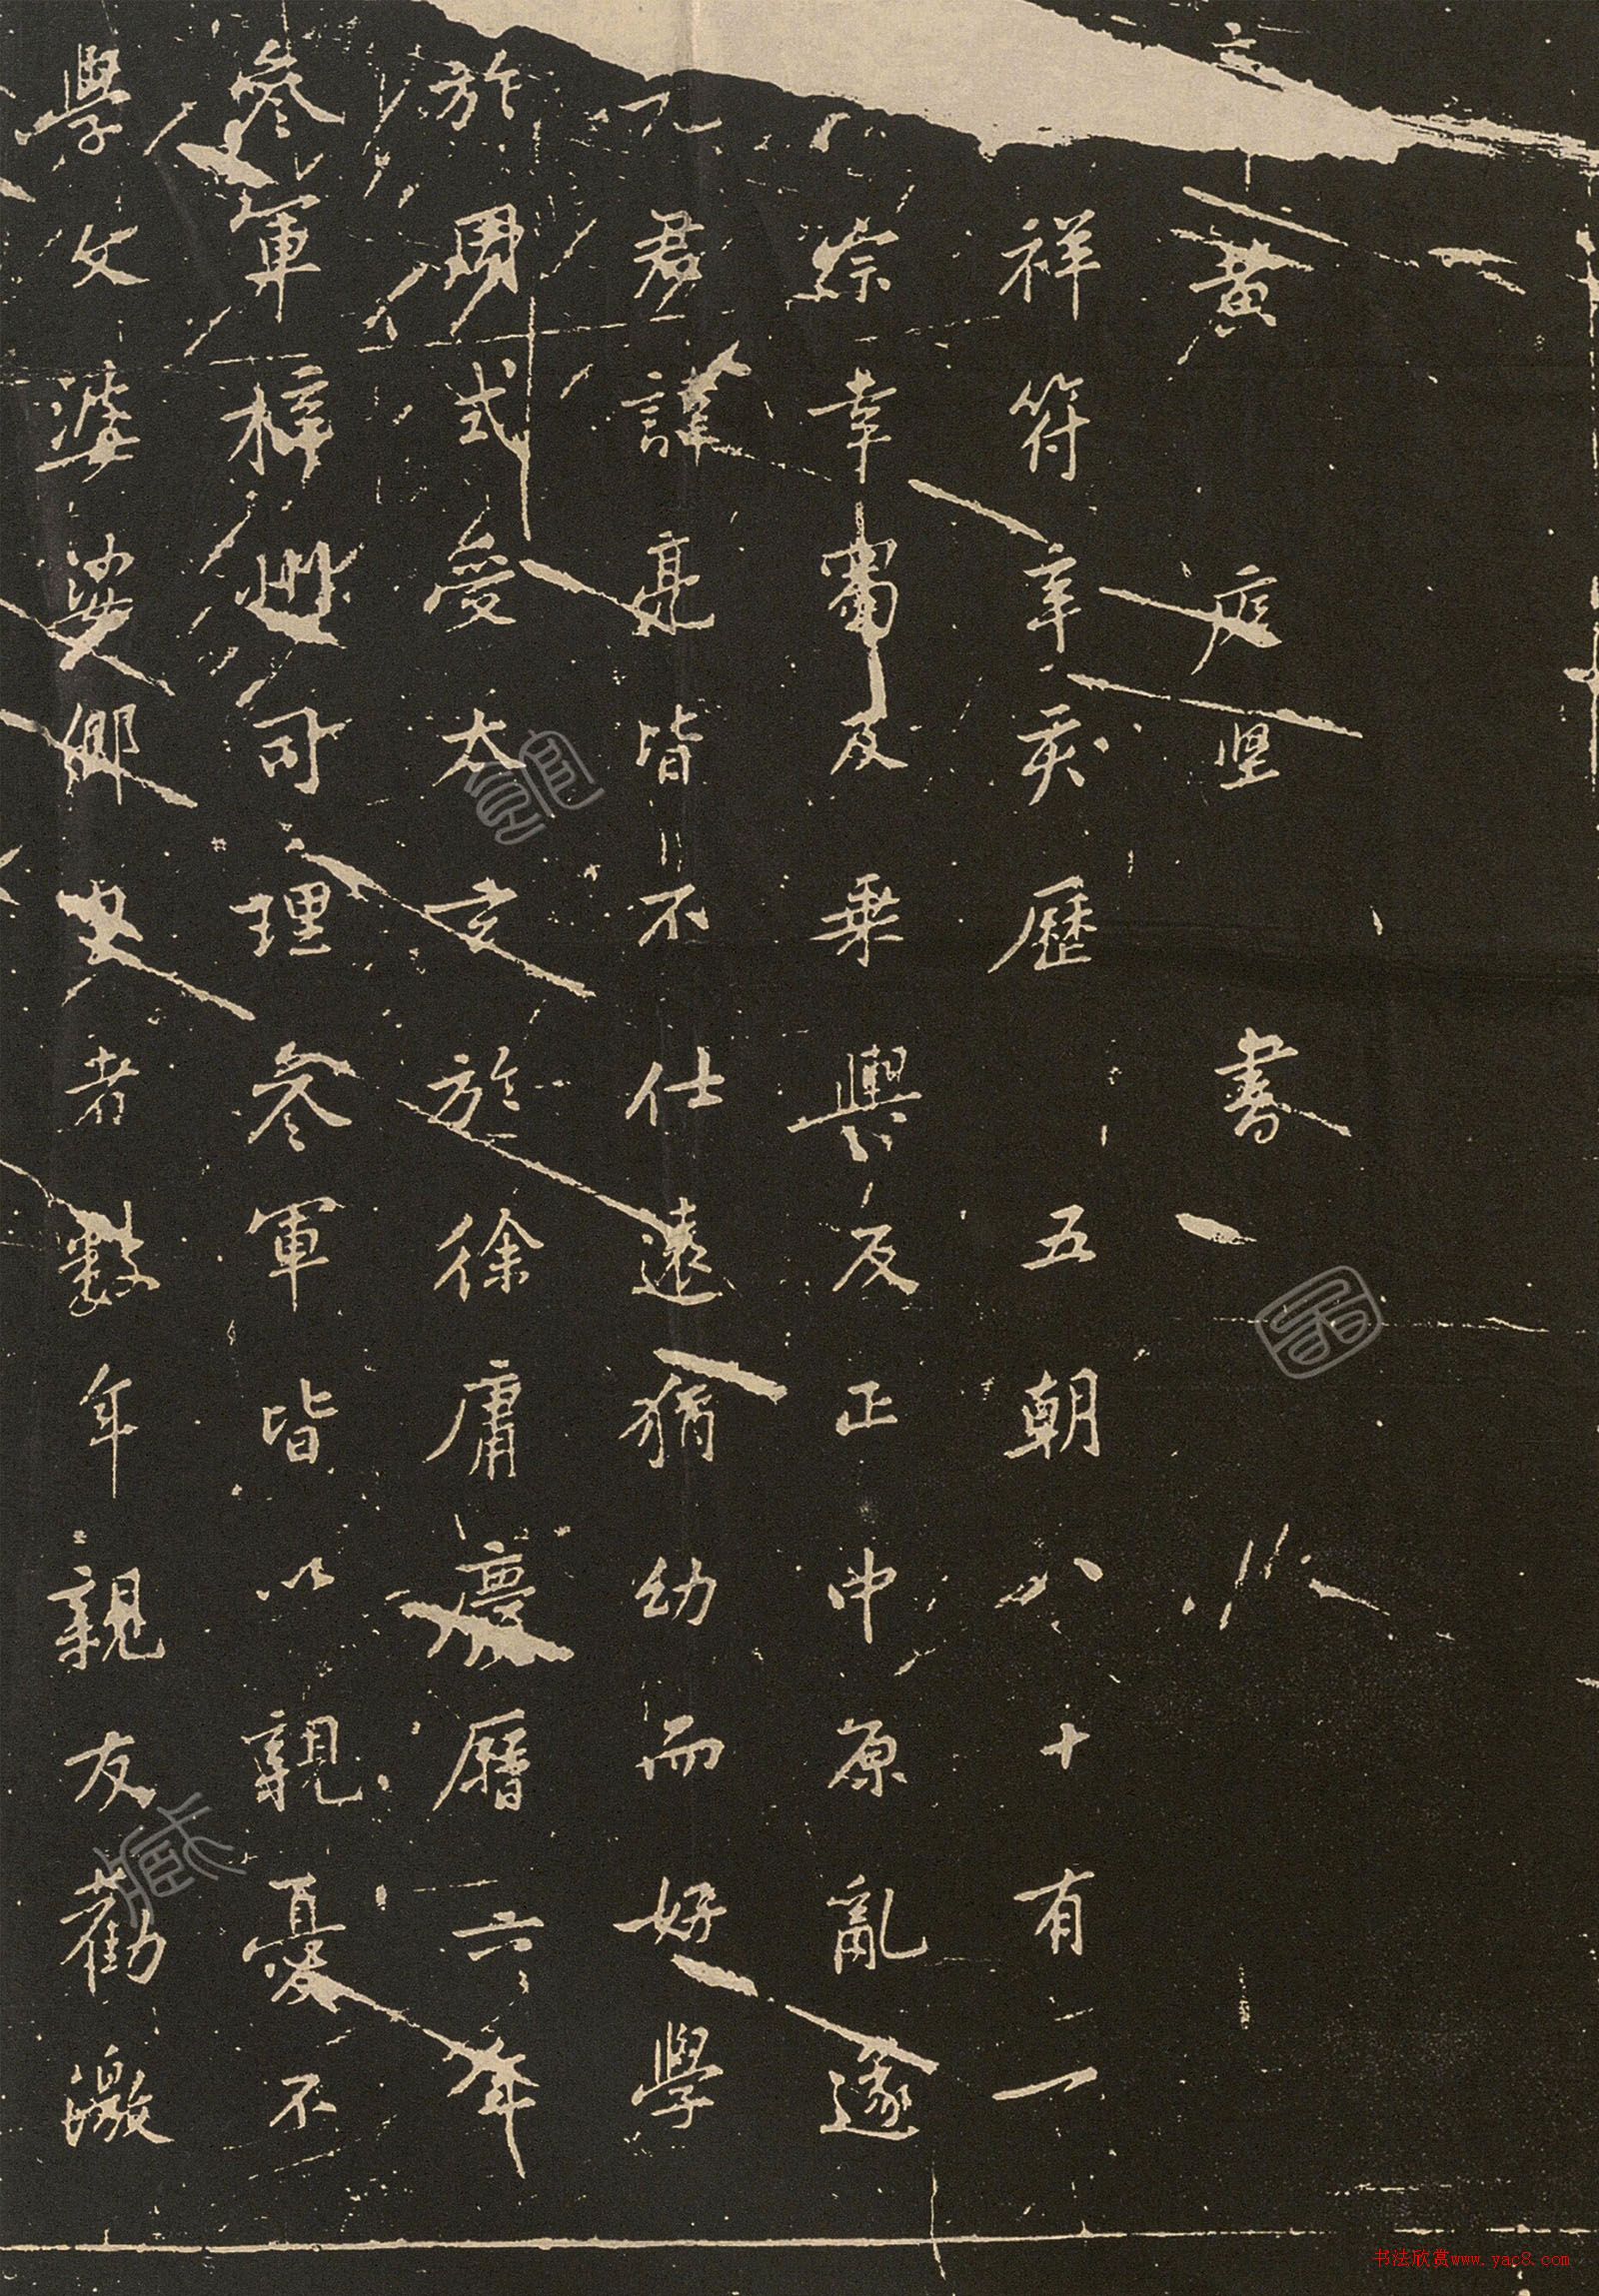 黃庭堅書
祥符辛亥歷五朝八十有一
宗幸蜀及乘輿反正中原亂遂
君諱亮皆不仕遠猶幼而好學
於周式受太玄於徐庸慶曆六年
參軍梓州司理參軍皆以親憂不
學文婆娑鄉里者數年親友勸激
书法欣赏www.yac8.com